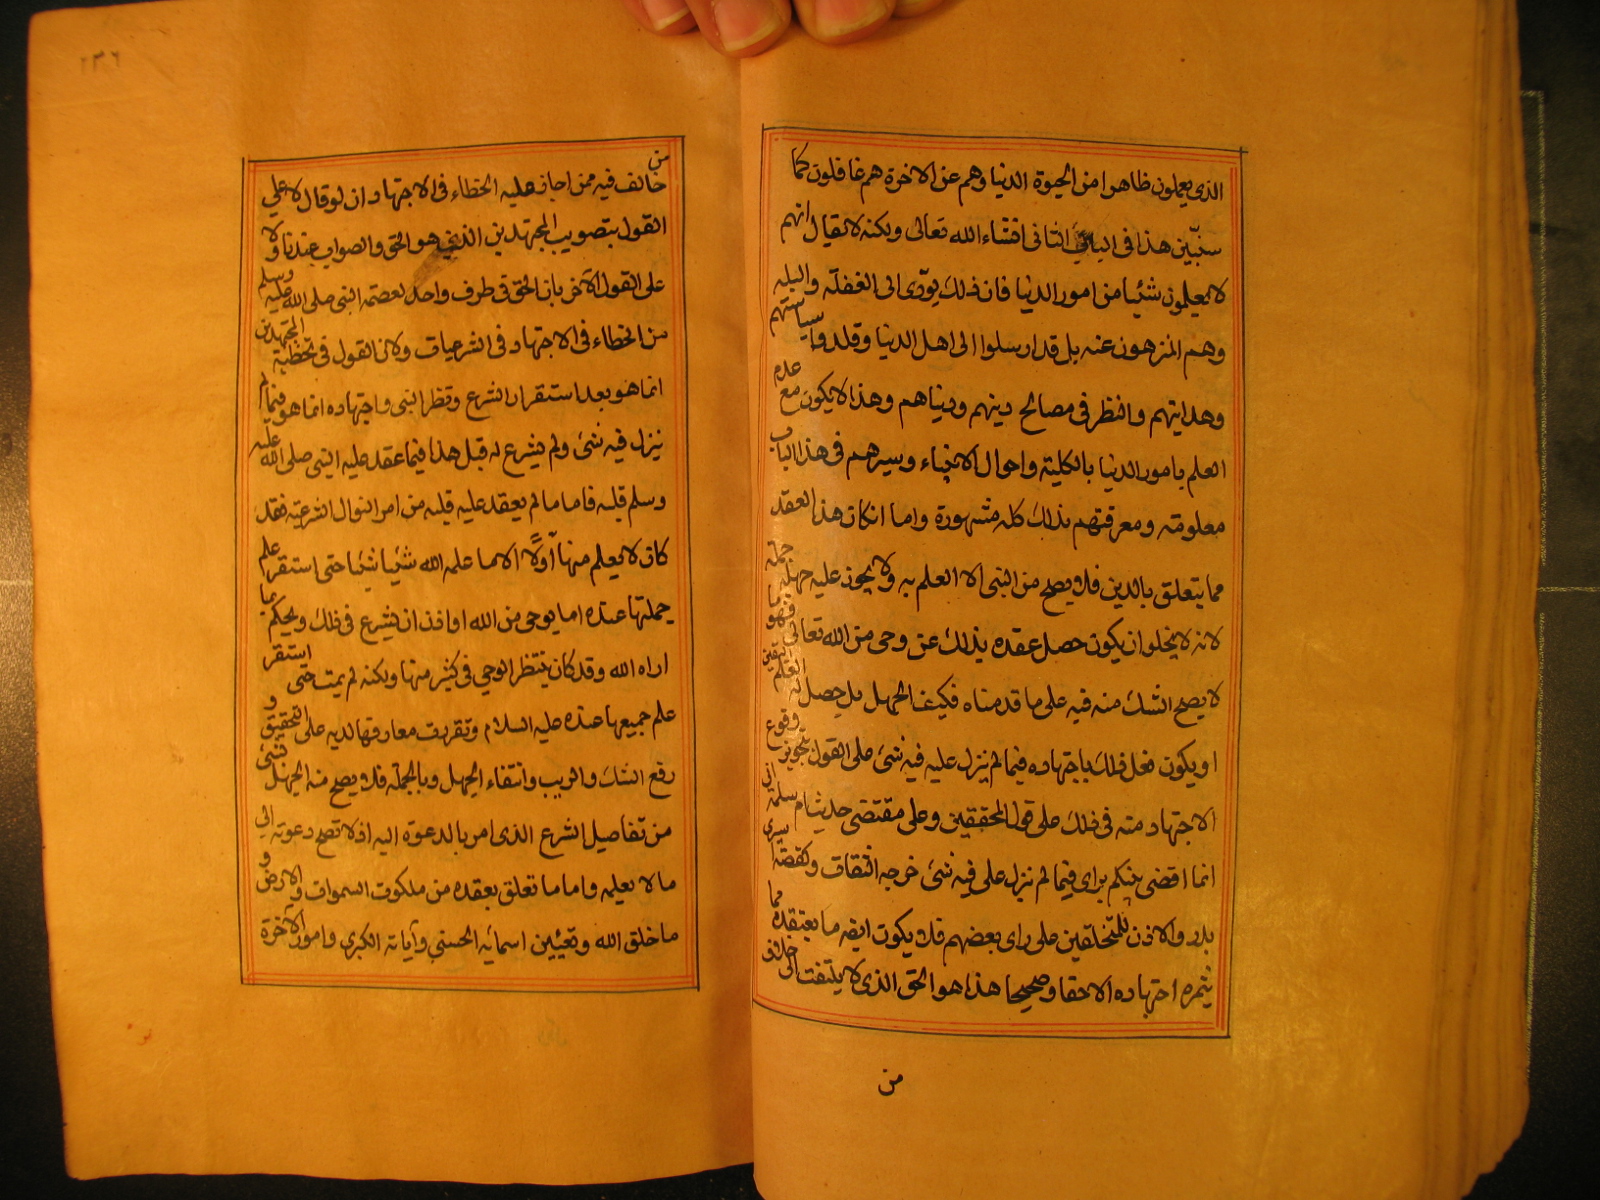 الذى يعملون ظاهرا من الحيوة الدنيا وهم عن الاخرة هم غافلون كما
سنبّين هذا فى الباب الثانى انشاء الله تعالى ولكنه لا يقال انهم
لا يعلمون شئيا من امور الدنيا فان ذلك يودّى الى الغفلة والبله
وهم المنزهون عنه بل قد ارسلوا الى اهل الدنيا وقلدوا سياستهم
وهدايتهم وانظر فى مصالح دينهم ودنياهم وهذا لا يكون مع عدم
العلم بامور الدنيا بالكلية واحوال الانبياء وسيرهم فى هذا الباب
معلومته ومعرفتهم بذلك كله مشهورة واما انكان هذا العقد
مما يتعلق بالدين فلا يصح من النبى الا العلم به ولا يجوز عليه جهله جملة
لانه لا يخلو ان يكون حصل عنده بذلك عن وحى من الله تعالى فهو ما
لا يصح الشك منه فيه على ما قدمناه فكيف الجهل بل حصل له العلم اليقين
او يكون فعل ذلك باجتهاده فيما لم ينزل عليه فيه شئ على القول بتجويز وقوع
الاجتهاد منه فى ذلك على قول المحققين وعلى مقتضى حديث ام سلمة انى
انما اقضى بينكم براى فيما لم ينزل على فيه شئ خرجه الثقاة وكقصة اسرى
بدر والاذن للمتخلفين على راى بعضهم فلا يكون ايضه ما يعتقده مما
يُثمره اجتهاده الا حقا وصحيحا هذا هو الحق الذى لا يلتفت الى خلاف
من
٢٣٦
من
خالف فيه ممن اجاز عليه الخطاء فى الاجتهاد ان لو قال لا على
القول بتصويب المجتهدين الذى هو الحق والصواب عندنا ولا
على القول الآخر بان الحق فى طرف واحد لعصمة النبى صلى الله عليه وسلم
من الخطاء فى الاجتهاد فى الشرعيات ولان القول فى تخطئة المجتهدين
انما هو بعد استقرار الشرع ونظر النبى واجتهاده انما هو فيما لم
ينزل فيه شئ ولم يشرع له قبل هذا فيما عقد عليه النبى صلى الله عليه
وسلم قلبه فاما ما لم يعقد عليه قلبه من امر النوال الشرعية فقد
كان لا يعلم منها اولًا الا ما علمه الله شئيا شئيا حتى استقر علم
جملتها عنده اما يوحى من الله او اذن ان يشرع فى ذلك ويحكم بما
اراه الله وقد كان ينتظر الوحى فى كثير منها ولكنه لم يمت حتى استقر
علم جميعها عنده عليه السلام وتقررت معارفها لديه على التحقيق و
رفع الشك والريب وانتفاء الجهل وبالجملة فلا يصح منه الجهل بشئ
من تفاصيل الشرع الذى امر بالدعوة اليه اذ لا تصح دعوته الى
ما لا يعلمه واما ما تعلق بعقده من ملكوت السموات والارض و
ما خلق الله وتعيين اسمائه الحسنى وآياته الكبرى وامور الآخرة